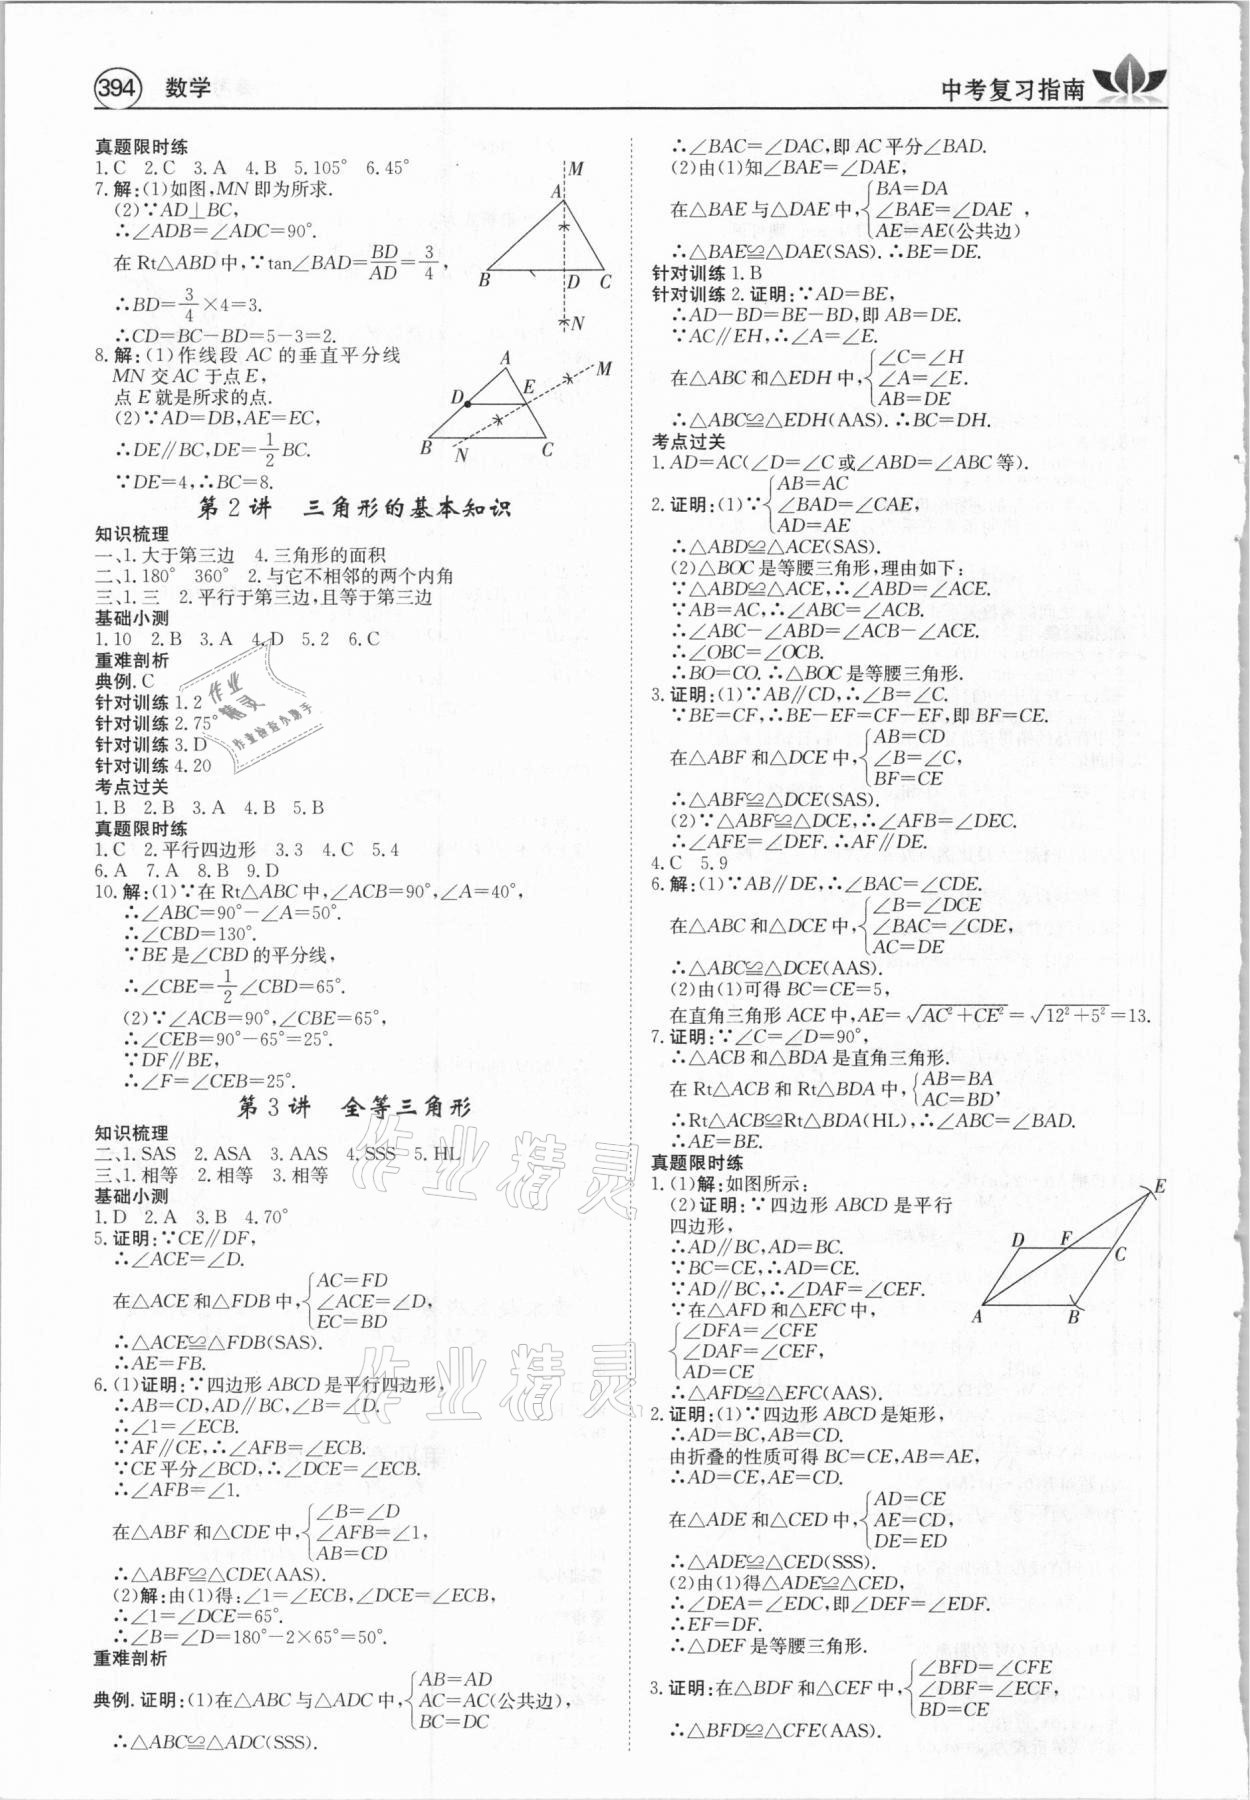 394 数学
中考复习指南
真题限时练
1.C 2.C 3.A 4.B 5.105° 6.45°
7.解:(1)如图,MN即为所求.
(2)∵AD⊥BC,
∴∠ADB=∠ADC=90°.
在Rt△ABD中,∵tan∠BAD=BD/AD=3/4,
∴BD=3/4×4=3.
∴CD=BC−BD=5−3=2.
M
A
B
D
C
N
8.解:(1)作线段AC的垂直平分线
MN交AC于点E,
点E就是所求的点.
(2)∵AD=DB,AE=EC,
∴DE∥BC,DE=1/2BC.
∵DE=4,∴BC=8.
A
M
D
E
B
N
C
第2讲 三角形的基本知识
知识梳理
一、1.大于第三边 4.三角形的面积
二、1.180° 360° 2.与它不相邻的两个内角
三、1.三 2.平行于第三边,且等于第三边
基础小测
1.10 2.B 3.A 4.D 5.2 6.C
重难剖析
典例.C
针对训练1.2
针对训练2.75°
针对训练3.D
针对训练4.20
考点过关
1.B 2.B 3.A 4.B 5.B
真题限时练
1.C 2.平行四边形 3.3 4.C 5.4
6.A 7.A 8.B 9.D
10.解:(1)∵在Rt△ABC中,∠ACB=90°,∠A=40°,
∴∠ABC=90°−∠A=50°.
∴∠CBD=130°.
∵BE是∠CBD的平分线,
∴∠CBE=1/2∠CBD=65°.
(2)∵∠ACB=90°,∠CBE=65°,
∴∠CEB=90°−65°=25°.
∵DF∥BE,
∴∠F=∠CEB=25°.
第3讲 全等三角形
知识梳理
二、1.SAS 2.ASA 3.AAS 4.SSS 5.HL
三、1.相等 2.相等 3.相等
基础小测
1.D 2.A 3.B 4.70°
5.证明:∵CE∥DF,
∴∠ACE=∠D.
在△ACE和△FDB中,{AC=FD
∠ACE=∠D,
EC=BD
∴△ACE≌△FDB(SAS).
∴AE=FB.
6.(1)证明:∵四边形ABCD是平行四边形,
∴AB=CD,AD∥BC,∠B=∠D.
∴∠1=∠ECB.
∵AF∥CE,∴∠AFB=∠ECB.
∵CE平分∠BCD,∴∠DCE=∠ECB.
∴∠AFB=∠1.
在△ABF和△CDE中,{∠B=∠D
∠AFB=∠1,
AB=CD
∴△ABF≌△CDE(AAS).
(2)解:由(1)得:∠1=∠ECB,∠DCE=∠ECB,
∴∠1=∠DCE=65°.
∴∠B=∠D=180°−2×65°=50°.
重难剖析
典例.证明:(1)在△ABC与△ADC中,{AB=AD
AC=AC(公共边),
BC=DC
∴△ABC≌△ADC(SSS).
∴∠BAC=∠DAC,即AC平分∠BAD.
(2)由(1)知∠BAE=∠DAE,
在△BAE与△DAE中,{BA=DA
∠BAE=∠DAE,
AE=AE(公共边)
∴△BAE≌△DAE(SAS).∴BE=DE.
针对训练1.B
针对训练2.证明:∵AD=BE,
∴AD−BD=BE−BD,即AB=DE.
∵AC∥EH,∴∠A=∠E.
在△ABC和△EDH中,{∠C=∠H
∠A=∠E.
AB=DE
∴△ABC≌△EDH(AAS).∴BC=DH.
考点过关
1.AD=AC(∠D=∠C或∠ABD=∠ABC等).
2.证明:(1)∵{AB=AC
∠BAD=∠CAE,
AD=AE
∴△ABD≌△ACE(SAS).
(2)△BOC是等腰三角形,理由如下:
∵△ABD≌△ACE,∴∠ABD=∠ACE.
∵AB=AC,∴∠ABC=∠ACB.
∴∠ABC−∠ABD=∠ACB−∠ACE.
∴∠OBC=∠OCB.
∴BO=CO.∴△BOC是等腰三角形.
3.证明:(1)∵AB∥CD,∴∠B=∠C.
∵BE=CF,∴BE−EF=CF−EF,即BF=CE.
在△ABF和△DCE中,{AB=CD
∠B=∠C,
BF=CE
∴△ABF≌△DCE(SAS).
(2)∵△ABF≌△DCE,∴∠AFB=∠DEC.
∴∠AFE=∠DEF.∴AF∥DE.
4.C 5.9
6.解:(1)∵AB∥DE,∴∠BAC=∠CDE.
在△ABC和△DCE中,{∠B=∠DCE
∠BAC=∠CDE,
AC=DE
∴△ABC≌△DCE(AAS).
(2)由(1)可得BC=CE=5,
在直角三角形ACE中,AE=√(AC²+CE²)=√(12²+5²)=13.
7.证明:∵∠C=∠D=90°,
∴△ACB和△BDA是直角三角形.
在Rt△ACB和Rt△BDA中,{AB=BA
AC=BD,
∴Rt△ACB≌Rt△BDA(HL),∴∠ABC=∠BAD.
∴AE=BE.
真题限时练
1.(1)解:如图所示:
(2)证明:∵四边形ABCD是平行
四边形,
∴AD∥BC,AD=BC.
∵BC=CE,∴AD=CE.
∵AD∥BC,∴∠DAF=∠CEF.
∵在△AFD和△EFC中,
{∠DFA=∠CFE
∠DAF=∠CEF,
AD=CE
∴△AFD≌△EFC(AAS).
E
D
F
C
A
B
2.证明:(1)∵四边形ABCD是矩形,
∴AD=BC,AB=CD.
由折叠的性质可得BC=CE,AB=AE,
∴AD=CE,AE=CD.
在△ADE和△CED中,{AD=CE
AE=CD,
DE=ED
∴△ADE≌△CED(SSS).
(2)由(1)得△ADE≌△CED,
∴∠DEA=∠EDC,即∠DEF=∠EDF.
∴EF=DF.
∴△DEF是等腰三角形.
3.证明:在△BDF和△CEF中,{∠BFD=∠CFE
∠DBF=∠ECF,
BD=CE
∴△BFD≌△CFE(AAS).
作业精灵
作业精灵
作业精灵
作业检查小助手